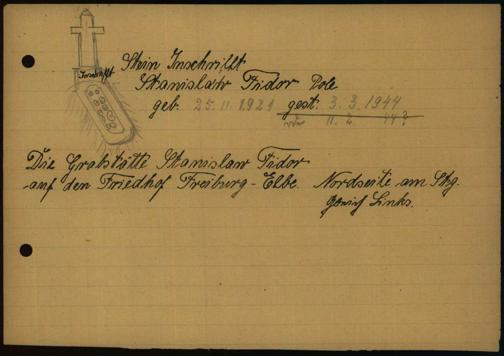 Inschrift
Stein Inschrifft
Stanislaw Fidor Pole
geb. 25.11.1921 gest. 3.3.1944
11. 2. 44?
Die Grabstätte Stanislaw Fidor
auf den Friedhof Freiburg-Elbe. Nordseite am Stg.
Links.